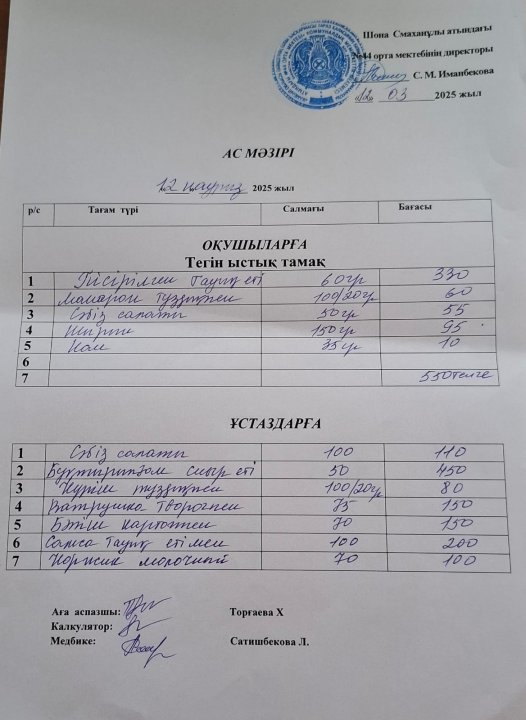 Шона Смаханұлы атындағы
№44 орта мектебінің директоры
С. М. Иманбекова
12 03 2025 жыл
АС МӘЗІРІ
12 наурыз 2025 жыл
р/с Тағам түрі Салмағы Бағасы
ОҚУШЫЛАРҒА
Тегін ыстық тамақ
1 Пісірілген Тауық еті 60гр 330
2 Макарон тұздықпен 100/20гр 60
3 Сәбіз салаты 50гр 55
4 Шырын 150гр 95
5 Нан 35гр 10
6
7 550теңге
ҰСТАЗДАРҒА
1 Сәбіз салаты 100 110
2 Бұқтырылған сиыр еті 50 450
3 Күріш тұздықпен 100/20гр 80
4 Ватрушка творогпен 75 150
5 Бәліш картоппен 70 150
6 Самса Тауық етімен 100 200
7 Коржик молочный 70 100
Аға аспазшы: Торғаева Х
Калкулятор:
Медбике: Сатишбекова Л.